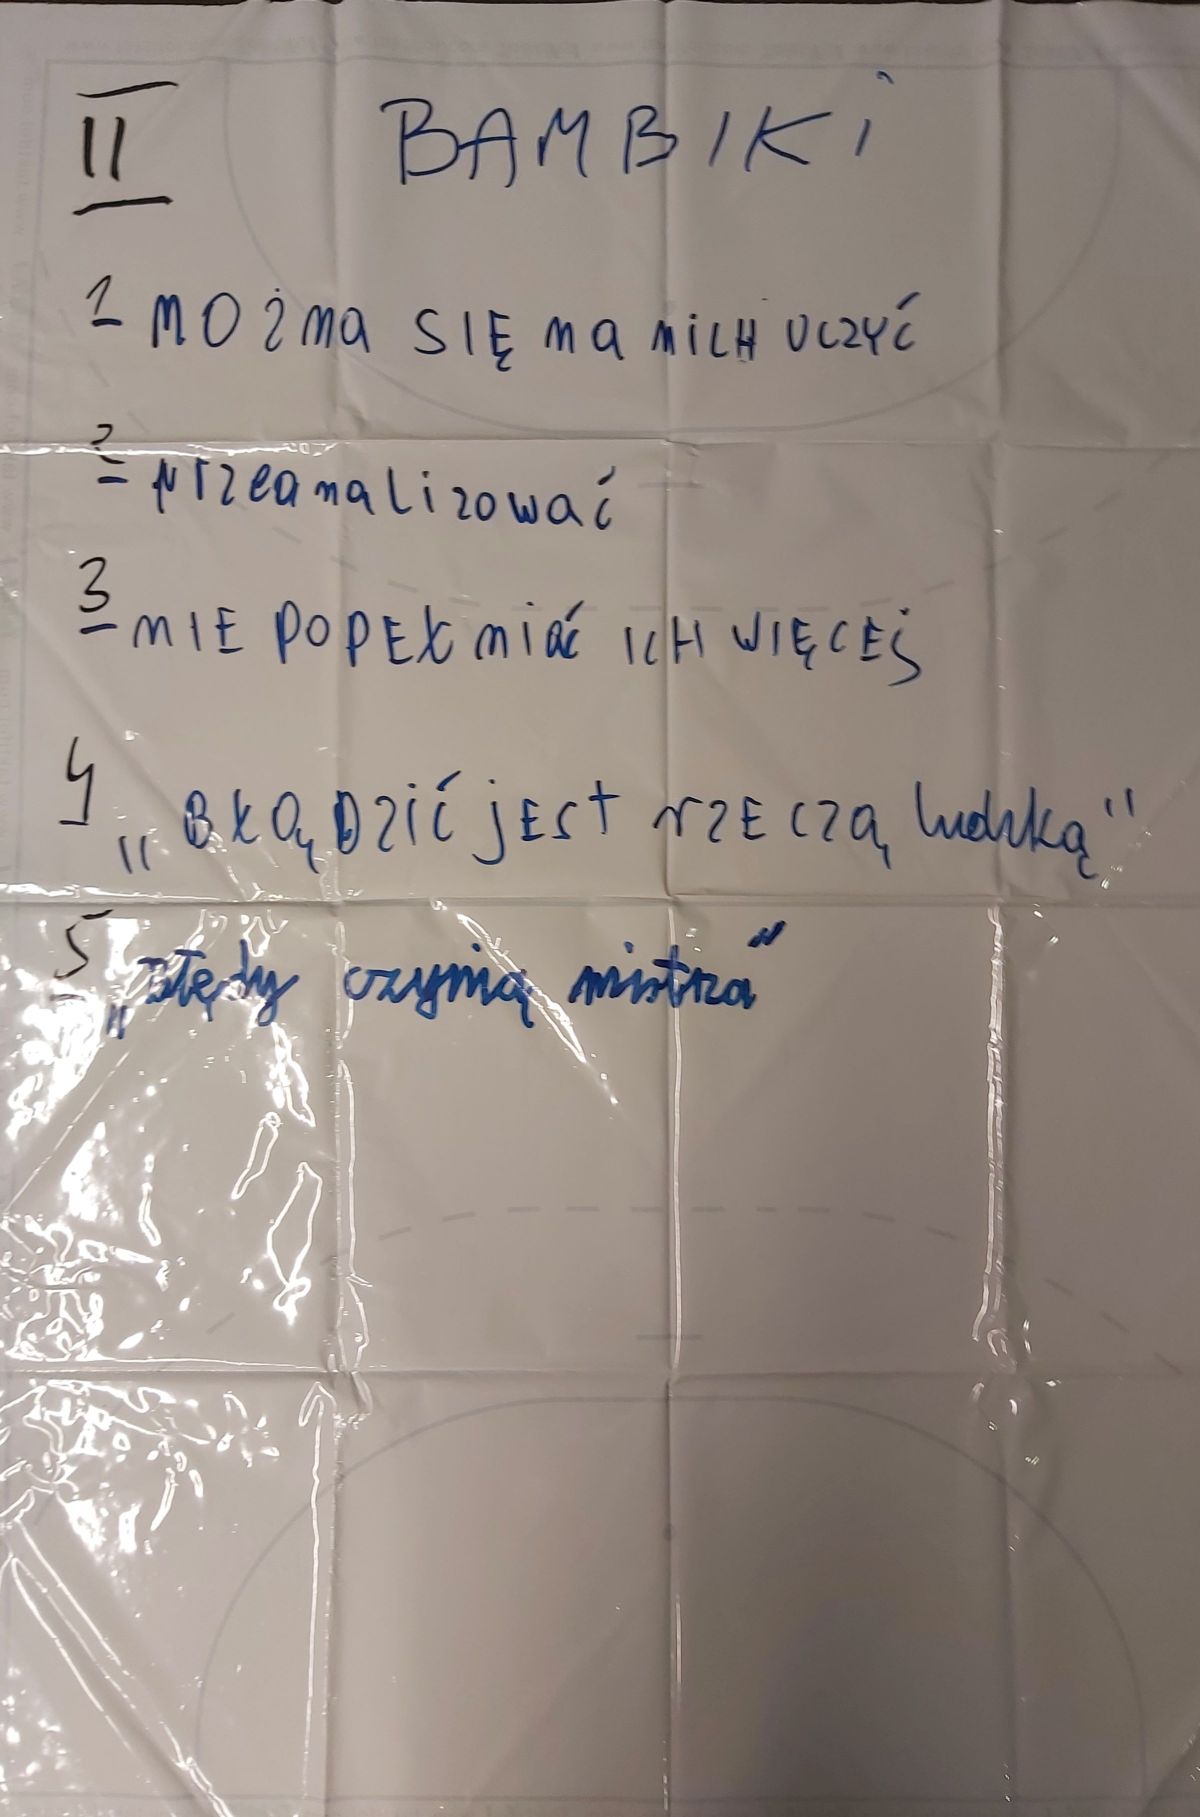 II BAMBIKI
1 MOŻna SIĘ na NICH UCZYĆ
2 przeanalizować
3 NIE POPEŁniać ICH WIĘCEJ
4 „BŁĄDZIĆ jEST rZECZĄ ludzką"
5 „Błędy czynią mistrza"